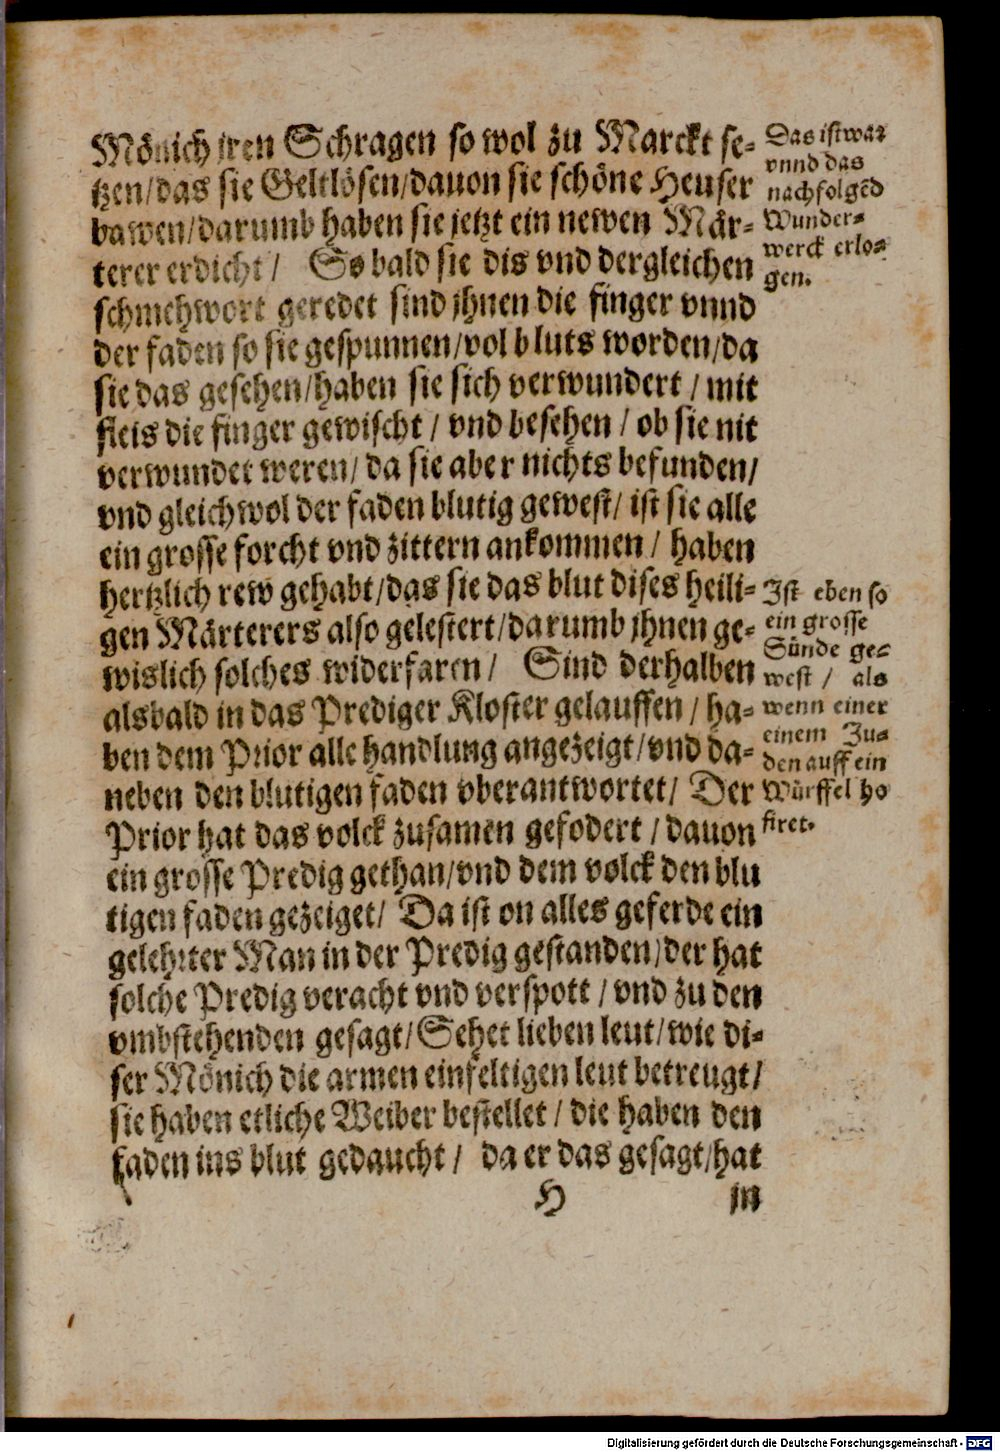 Mönich jren Schragen so wol zu Marckt se-
tzen/das sie Geltlösen/dauon sie schöne Heuser
bawen/darumb haben sie jetzt ein newen Mär-
terer erdicht/ So bald sie dis vnd dergleichen
schmehwort geredet sind jhnen die finger vnnd
der faden so sie gespunnen/vol bluts worden/da
sie das gesehen/haben sie sich verwundert/mit
fleis die finger gewischt/vnd besehen/ob sie nit
verwundet weren/da sie aber nichts befunden/
vnd gleichwol der faden blutig gewest/ist sie alle
ein grosse forcht vnd zittern ankommen/haben
hertzlich rew gehabt/das sie das blut dises heili-
gen Märterers also gelestert/darumb jhnen ge-
wislich solches widerfaren/ Sind derhalben
alsbald in das Prediger Kloster gelauffen/ha-
ben dem Prior alle handlung angezeigt/vnd da-
neben den blutigen faden vberantwortet/Der
Prior hat das volck zusamen gefodert/dauon
ein grosse Predig gethan/vnd dem volck den blu
tigen faden gezeiget/Da ist on alles geferde ein
gelehrter Man in der Predig gestanden/der hat
solche Predig veracht vnd verspott/vnd zu den
vmbstehenden gesagt/Sehet lieben leut/wie di-
ser Mönich die armen einfeltigen leut betreugt/
sie haben etliche Weiber bestellet/die haben den
faden ins blut gedaucht/ da er das gesagt/hat
H jm
Das ist war
vnnd das
nachfolgēd
Wunder-
werck erlo-
gen.
Ist eben so
ein grosse
Sünde ge-
west/ als
wenn einer
einem Ju-
den auff ein
Würffel ho
firet.
Digitalisierung gefördert durch die Deutsche Forschungsgemeinschaft - DFG